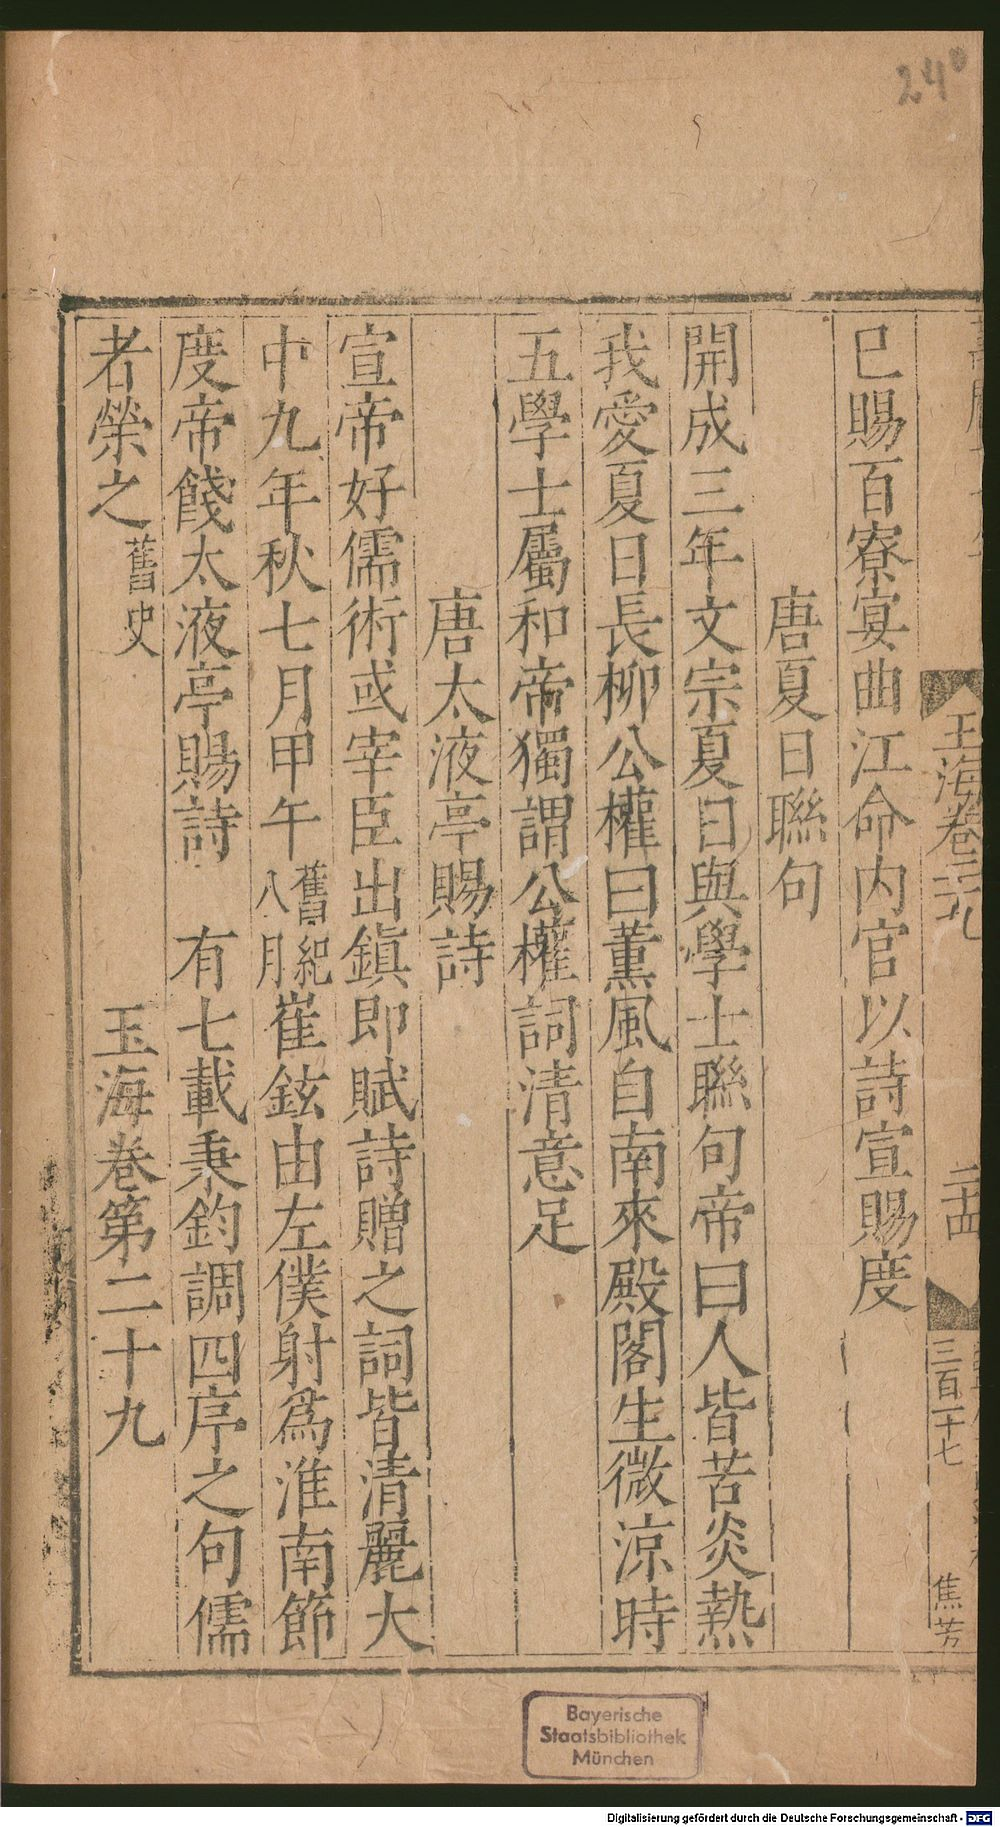 240
玉海卷二九
二十四
三百二十七
焦芳
巳賜百寮宴曲江命内官以詩宣賜度
唐夏日聯句
開成三年文宗夏日與學士聯句帝曰人皆苦炎熱
我愛夏日長柳公權曰薰風自南來殿閣生微涼時
五學士屬和帝獨謂公權詞清意足
唐太液亭賜詩
宣帝好儒術或宰臣出鎮即賦詩贈之詞皆清麗大
中九年秋七月甲午舊紀八月崔鉉由左僕射爲淮南節
度帝餞太液亭賜詩 有七載秉鈞調四序之句儒
者榮之舊史 玉海卷第二十九
Bayerische
Staatsbibliothek
München
Digitalisierung gefördert durch die Deutsche Forschungsgemeinschaft - DFG